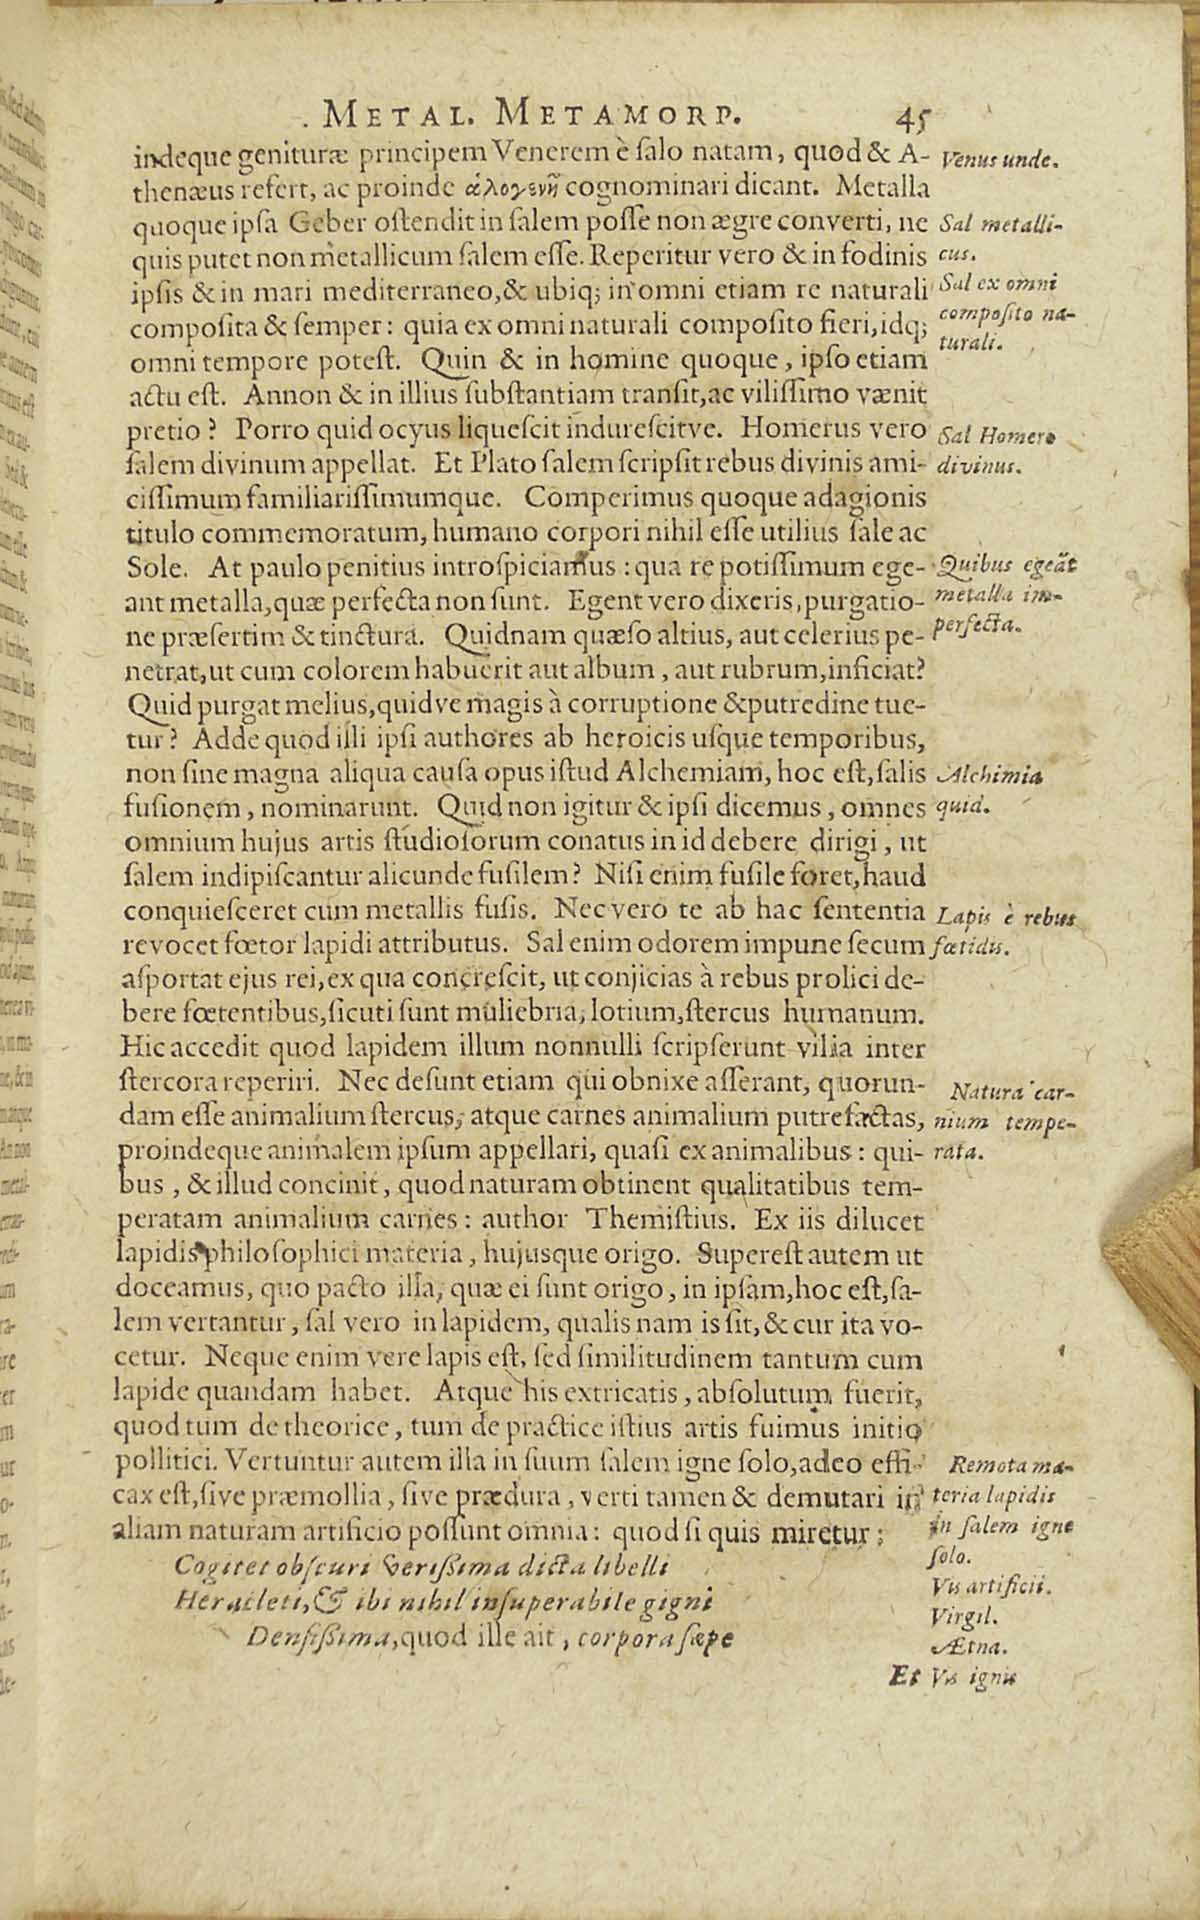 METAL. METAMORP. 45
indeque genituræ principem Venerem è salo natam, quod & A-
thenæus refert, ac proinde ἁλογενῆ cognominari dicant. Metalla
quoque ipsa Geber ostendit in salem posse non ægre converti, ne
quis putet non metallicum salem esse. Reperitur vero & in fodinis
ipsis & in mari mediterraneo, & ubiq; in omni etiam re naturali
composita & semper: quia ex omni naturali composito fieri, idq;
omni tempore potest. Quin & in homine quoque, ipso etiam
actu est. Annon & in illius substantiam transit, ac vilissimo vænit
pretio? Porro quid ocyus liquescit indurescitve. Homerus vero
salem divinum appellat. Et Plato salem scripsit rebus divinis ami-
cissimum familiarissimumque. Comperimus quoque adagionis
titulo commemoratum, humano corpori nihil esse utilius sale ac
Sole. At paulo penitius introspiciamus: qua re potissimum ege-
ant metalla, quæ perfecta non sunt. Egent vero dixeris, purgatio-
ne præsertim & tinctura. Quidnam quæso altius, aut celerius pe-
netrat, ut cum colorem habuerit aut album, aut rubrum, inficiat?
Quid purgat melius, quidve magis à corruptione & putredine tue-
tur? Adde quod illi ipsi authores ab heroicis usque temporibus,
non sine magna aliqua causa opus istud Alchemiam, hoc est, salis
fusionem, nominarunt. Quid non igitur & ipsi dicemus, omnes
omnium hujus artis studiosorum conatus in id debere dirigi, ut
salem indipiscantur alicunde fusilem? Nisi enim fusile foret, haud
conquiesceret cum metallis fusis. Nec vero te ab hac sententia
revocet fœtor lapidi attributus. Sal enim odorem impune secum
asportat ejus rei, ex qua concrescit, ut conjicias à rebus prolici de-
bere fœtentibus, sicuti sunt muliebria, lotium, stercus humanum.
Hic accedit quod lapidem illum nonnulli scripserunt vilia inter
stercora reperiri. Nec desunt etiam qui obnixe asserant, quorun-
dam esse animalium stercus, atque carnes animalium putrefactas,
proindeque animalem ipsum appellari, quasi ex animalibus: qui-
bus, & illud concinit, quod naturam obtinent qualitatibus tem-
peratam animalium carnes: author Themistius. Ex iis dilucet
lapidis philosophici materia, hujusque origo. Superest autem ut
doceamus, quo pacto illa, quæ ei sunt origo, in ipsam, hoc est, sa-
lem vertantur, sal vero in lapidem, qualis nam is sit, & cur ita vo-
cetur. Neque enim vere lapis est, sed similitudinem tantum cum
lapide quandam habet. Atque his extricatis, absolutum fuerit,
quod tum de theorice, tum de practice istius artis fuimus initio
polliciti. Vertuntur autem illa in suum salem igne solo, adeo effi-
cax est, sive præmollia, sive prædura, verti tamen & demutari in
aliam naturam artificio possunt omnia: quod si quis miretur;
Cogitet obscuri verissima dicta libelli
Heracleti, & ibi nihil insuperabile gigni
Densissima, quod ille ait, corpora sæpe
Et
Venus unde.
Sal metalli-
cus.
Sal ex omni
composito na-
turali.
Sal Homero
divinus.
Quibus egeãt
metalla im-
perfecta.
Alchimia
quid.
Lapis è rebus
fœtidis.
Natura car-
nium tempe-
rata.
Remota ma-
teria lapidis
in salem igne
solo.
Vis artificii.
Virgil.
Ætna.
Vis ignis